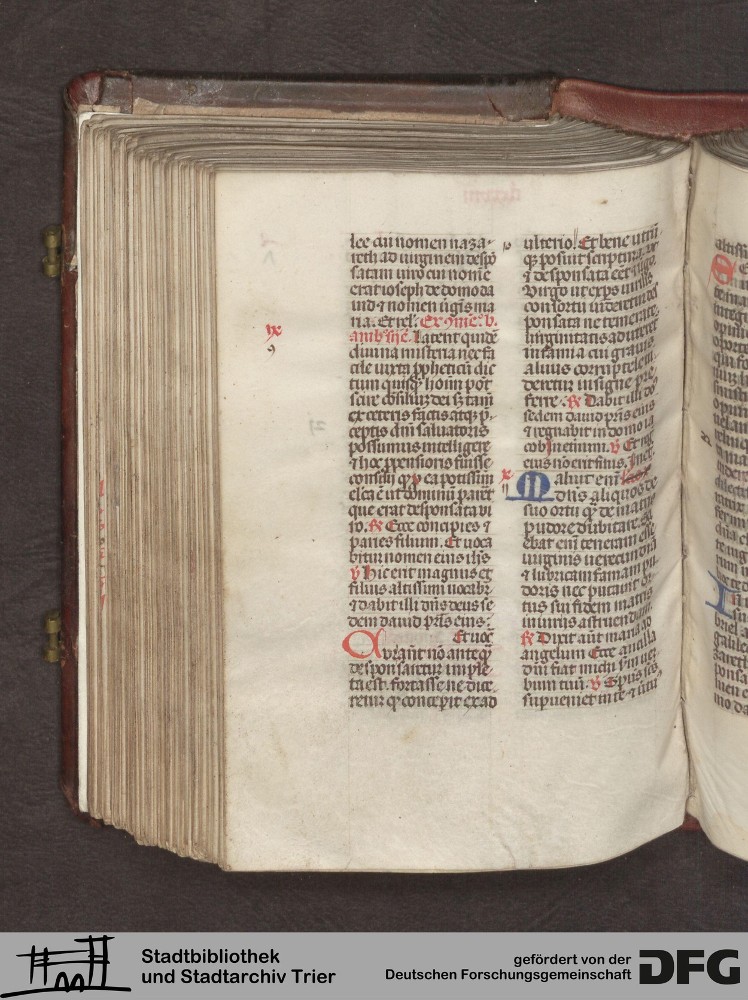 lee cui nomen naza-
reth ad uirginem despō
satam uiro cui nomē
erat ioseph de domo da
uid ⁊ nomen ūgīs ma
ria. Et rel̄. Ex ꝯme. b.
ambrīhe. Latent quidē
diuina misteria nec fa
cile iuxta ppheticū dic
tum quisq̄ hoīm pōt
scire cōsiliū dei sꝫ tam̄
ex ceteris factis atqꝫ p̄-
ceptis dn̄i saluatoris
possumus intelligere
⁊ hoc ppensioris fuisse
consilij qꝫ ea potissimū
elēa ē ut dominū parēt
que erat desponsata vi
ro. R̄ Ecce concipies ⁊
paries filium. Et uoca
bitur nomen eius ihs
v̄ Hic erit magnus et
filius altissimi uocabr
⁊ dabit illi dn̄s deus se
dem dauid pr̄is eius.
Et uoc̄
Cur aūt nō anteq̄
desponsaretur imple
ta est. fortasse ne dice
retur qꝫ concepit ex ad
ix
ulterio. Et bene utrū-
qꝫ posuit scriptura. ut
⁊ desponsata eēt ⁊ ūgo.
Virgo ut exps uirilis
consortij uideretur des
ponsata ne temerate
uirginitatis adureret
infamia cui grauis
aluus corruptelem
deretur insigne pre
ferre. R̄ Dabit illi dn̄s
sedem dauid pr̄is eius
⁊ regnabit in domo ia
cob in etinum. v̄ Et rḡ
eius nō erit finis. In et̄.
x
Maluit em̄
dn̄s aliquos de
suo ortu qꝫ de matris
pudore dubitare. sci
ebat em̄ teneram esse
uirginis uerecundiā
⁊ lubricam famam pu
doris nec putauit or-
tus sui fidem matris
iniurijs astruendam.
R̄ Dixit aūt maria ad
angelum Ecce ancilla
dn̄i fiat michi scdm ver
bum tuū. v̄ Sp̄us scs̄
supueniet in te ⁊ uirtꝰ
Stadtbibliothek
und Stadtarchiv Trier
gefördert von der
Deutschen Forschungsgemeinschaft
DFG